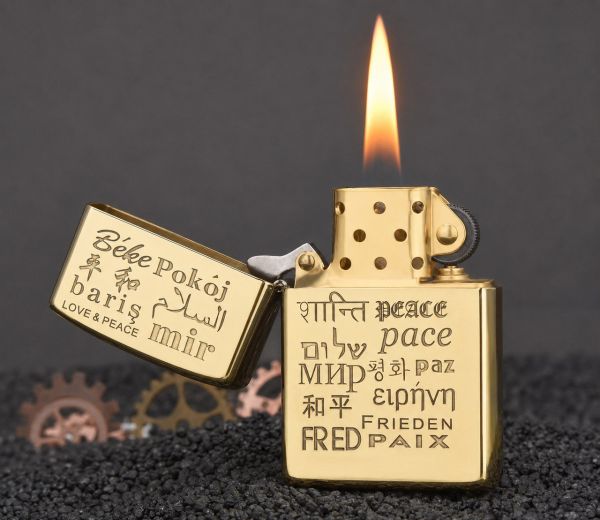 Béke
Pokój
平和
barış
السلام
LOVE & PEACE
mir
शान्ति PEACE
pace
שלום
мир 평화 paz
ειρήνη
和平
FRIEDEN
FRED PAIX